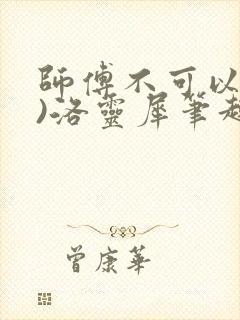 師傅不可以
)洛靈犀筆趣
曾康華